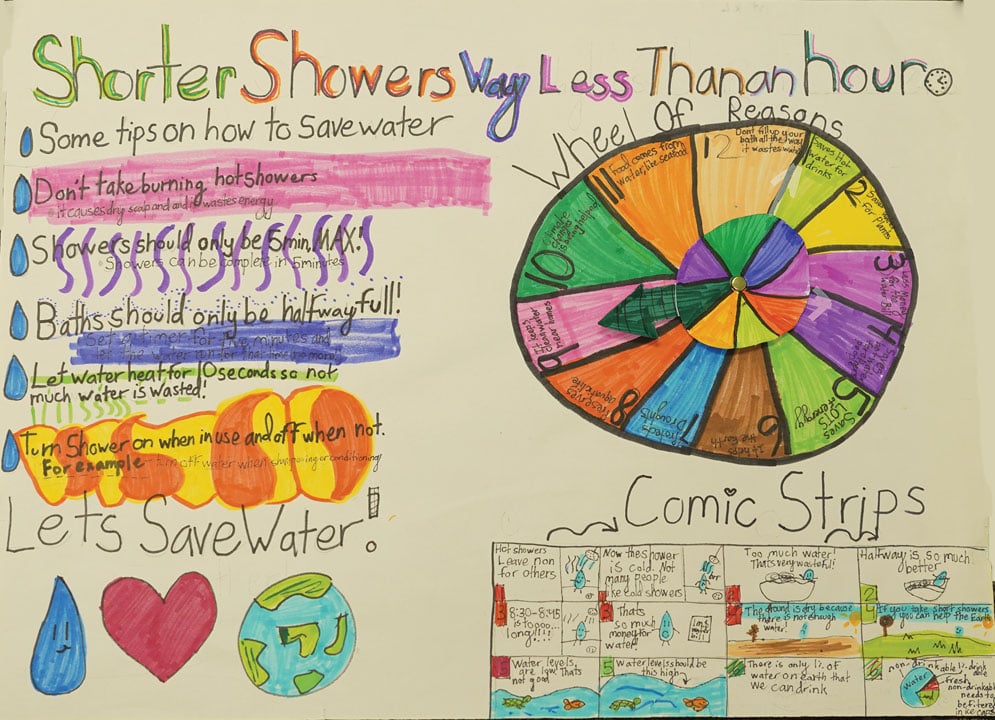 Shorter Showers Way Less Than an hour
Some tips on how to save water
Don't take burning hot showers
it causes dry scalp and and it wastes energy
Showers should only be 5 min. MAX!
Showers can be complete in 5 minutes
Baths should only be halfway full!
Set a timer for five minutes and
let the water run for that
Let water heat for 10 seconds so not
much water is wasted!
Turn Shower on when in use and off when not.
For example - turn off water when shampooing or conditioning
Lets Save Water!
Wheel Of Reasons
12
Dont fill up your
bath all the way
it wastes water
1
Saves Hot
water for
drinks
2
Saves
For plants
3
Less Money
for the
water Bill
4
5
Saves
LOTS
of energy
6
It helps
the earth
7
Protects
Droughts
8
Preserves
aquatic life
9
It keeps
clean water
near homes
10
11
Food comes from
water, like seafood
Comic Strips
Hot showers
Leave non
for others
Now the shower
is cold. Not
many people
like cold showers
Brr
Too much water!
Thats very wasteful!
Halfway is, so much
better
2
3
8:30-8:45
is tooooo...
long!!!!
3
Thats
so much
money for
water!
water
bill
4
The ground is dry because
there is not enough
water!
4
If you take short showers
you can help the Earth
5
Water levels
are low! Thats
not good
5
water levels should be
this high
There is only 1% of
water on Earth that
we can drink
6
non-drinkable
1% drinkable
water
fresh
non-drinkable
needs to
be filtered
in ice caps